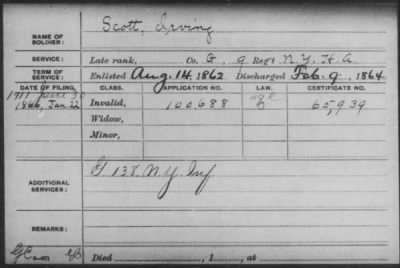 NAME OF SOLDIER: Scott, Irving
SERVICE: Late rank, Co. G, 9 Reg't N.Y. H.A.
TERM OF SERVICE: Enlisted Aug. 14, 1862 Discharged Feb. 9, 1864
DATE OF FILING. CLASS. APPLICATION NO. LAW. CERTIFICATE NO.
1866, Jan. 22 Invalid, 100688 65,939
Widow,
Minor,
ADDITIONAL SERVICES: G. 138 N.Y. Inf
REMARKS:
Died , 1 , at